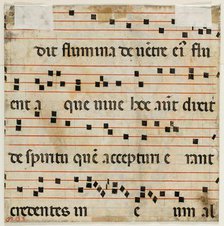 dit flumina de uentre ei flu
ent a que uiue hoc aut dixit
de spiritu que accepturi e rant
credentes in e um al